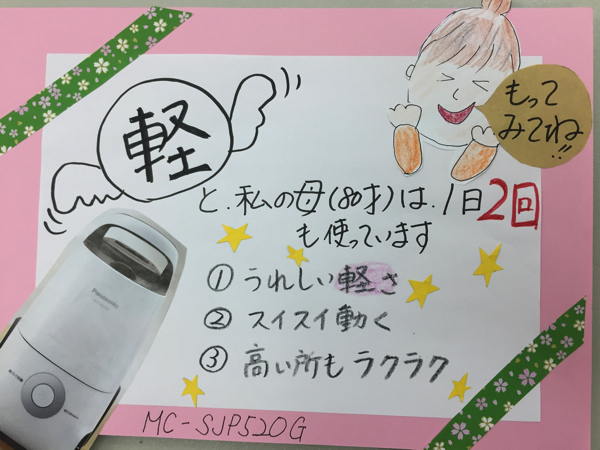 軽
もって
みてね!!
と.私の母(80才)は.1日2回
も使っています
① うれしい軽さ
② スイスイ動く
③ 高い所もラクラク
Panasonic
MC-SJP520G